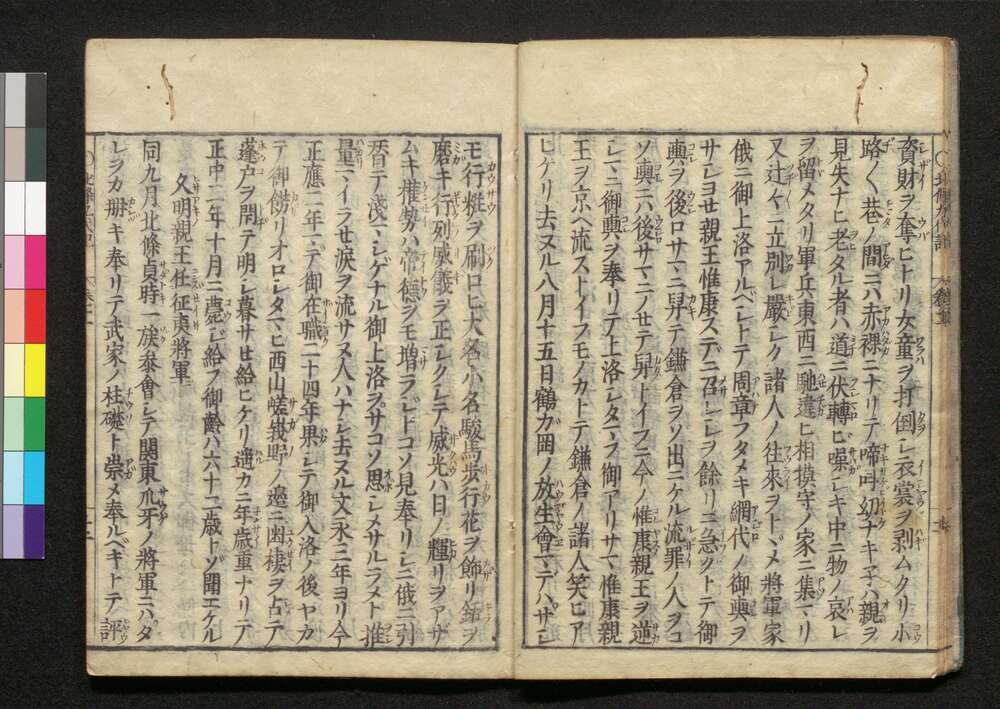 資財ヲ奪ヒトリ女童ヲ打倒シ衣裳ヲ剥ムクリ小
路〱巷ノ間ニハ赤裸ニナリテ啼呌幼ナキ子ハ親ヲ
見失ナヒ老タル者ハ道ニ伏轉ビ喚キ中ニ物ノ哀レ
ヲ留メタリ軍兵東西ニ馳違ヒ相摸守ノ家ニ集マリ
又辻〱ニ立別レ嚴シク諸人ノ往來ヲトヾメ將軍家
俄ニ御上洛アルベシトテ周章フタメキ網代ノ御輿ヲ
サシヨセ親王惟康スデニ召レシヲ餘リニ急クトテ御
輿ヲ後ロサマニ舁テ鎌倉ヲソ出ニケル流罪ノ人ヲコ
ソ輿ニハ後サマニノせテ舁トイフニ今ノ惟康親王ヲ逆
シマニ御輿ヲ奉リテ上洛シタマフ御アリサマ惟康親
王ヲ京ヘ流ストイフモノカトテ鎌倉ノ諸人笑ヒア
ヒケリ去ヌル八月十五日鶴ガ岡ノ放生會マデハサシ
モ行粧ヲ刷ロヒ大名小名駿馬歩行花ヲ飾リ鋩ヲ
磨キ行列威義ヲ正シクシテ威光ハ日ノ輝リヲアザ
ムキ權勢ハ帝德ヲモ増ラレドコソ見奉リシニ俄ニ引
替テ淺マシゲナル御上洛ヲサコソ思シメサルラメト推
量マイラせ涙ヲ流サヌ人ハナシ去ヌル文永三年ヨリ今
正應二年マデ御在職二十四年果シテ御入洛ノ後ヤカ
テ御餝リオロシタマヒ西山嵯峨野ノ邊ニ幽棲ヲ占テ
蓬戸ヲ閇テ明シ暮サせ給ヒケリ遥カニ年歳重ナリテ
正中二年十月ニ薨シ給フ御齡ハ六十二歳トゾ聞エケル
久明親王任征夷將軍
同九月北條貞時一族參會シテ關東爪牙ノ將軍ニハタ
レヲカ册キ奉リテ武家ノ柱礎ト崇メ奉ルベキトテ評